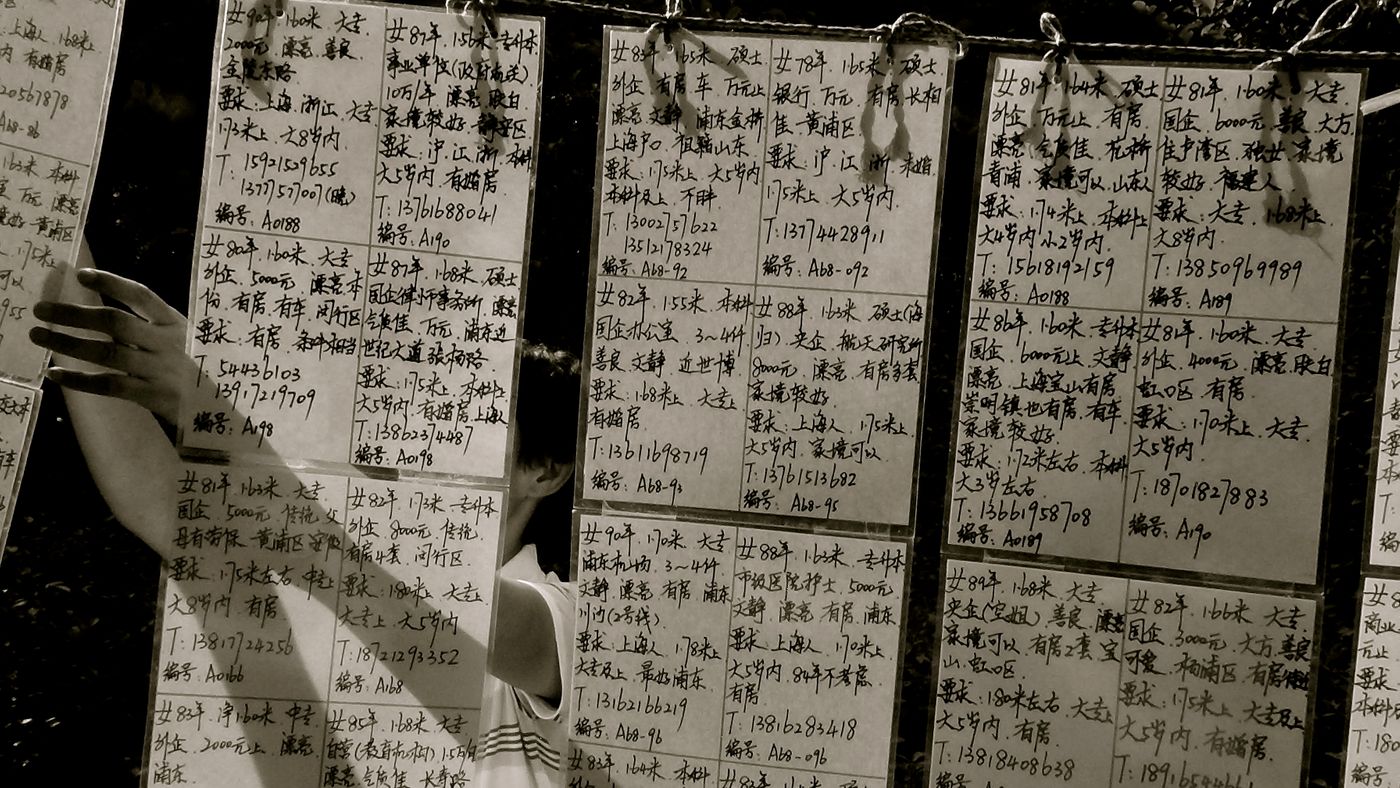 上海人 168米上
内 有婚房
20567878
A68-86
163米 本科
万元 漂亮
黄浦区
175米
可以
955
女90年.160米.大专
2000元.漂亮.善良
金陵东路
要求:上海.浙江.大专
173米上.大8岁内
T:15921529655
13777157007(晚)
编号:A0188
女87年.156米.专升本
事业单位(政府
10万/年 漂亮 肤白
家境较好.静安区
要求:沪.江.浙.本科
大5岁内.有婚房
T:13761688041
编号:A190
女80年.160米.大专
外企.5000元 漂亮.本
份.有房.有车.闵行区
要求:有房.条件相当
T:54436103
13917219709
编号:A198
女87年.168米.硕士
国企律师事务所.漂亮
气质佳.万元.浦东近
世纪大道 张杨路
要求:175米.本科上
大5岁内.有婚房.上海人
T:13862374487
编号:A0198
女81年.163米.大专
国企.5000元.传统.父
母有劳保.黄浦区
要求:175米左右.中专上
大8岁内.有房
T:13817724256
编号:A0166
女82年.173米.专升本
外企.8000元.传统
有房4套.闵行区
要求:180米上.大专上
大专上.大5岁内
T:18721293352
编号:A168
女83年.净160米.中专
外企.2000元上.漂亮
浦东
女85年.168米.大专
自营(教育机构).15万
漂亮.气质佳.长寿路
女83年.165米.硕士
外企.有房.车.万元上
漂亮.文静.浦东金桥
上海户口.祖籍山东
要求:175米上.大5岁内
本科及上.不胖
T:13002757622
13512178324
编号:A68-92
女78年.165米.硕士
银行.万元.有房.长相
佳.黄浦区
要求:沪.江.浙.未婚
175米上.大5岁内.
T:13774428911
编号:A68-092
女82年.155米.本科
国企办公室.3~4仟
善良.文静.近世博
要求:168米上.大专上
有婚房.
T:13611698719
编号:A68-93
女88年.163米.硕士(海
归).央企.航天研究所
8000元.漂亮.有房多套
家境较好.
要求:上海人.175米上.
大5岁内.家境可以.
T:13761513682
编号:A68-95
女90年.170米.大专
浦东机场.3~4仟
文静.漂亮.有房.浦东
川沙(2号线)
要求:上海人.178米上
大专及上.最好浦东
T:13162166219
编号:A68-96
女88年.163米.专升本
市级医院护士.5000元
文静.漂亮.有房.浦东
要求:上海人.170米上
大5岁内.84年不考虑.
有房.
T:13816283418
编号:A68-096
女83年.164米.本科
女81年.164米.硕士
外企.万元上.有房
漂亮.气质佳.花桥
青浦.家境可以.山东人
要求:174米上.本科上
大4岁内.小2岁内.
T:15618192159
编号:A0188
女81年.160米.大专
国企.6000元.善良.大方
佳.卢湾区.独女.家境
较好.福建人.
要求:大专.168米上
大8岁内.
T:13850969989
编号:A189
女86年.160米.专升本
国企.6000元上.文静
漂亮.上海宝山有房
崇明镇也有房.有车.
家境较好
要求:172米左右.本科
大3岁左右.
T:13661958708
编号:A0189
女81年.160米.大专
外企.4000元.漂亮.肤白
虹口区.有房
要求:170米上.大专.
大5岁内.
T:18701827883
编号:A190
女89年.168米.大专
央企(空姐).善良.漂亮
家境可以.有房2套.宝
山.虹口区
要求:180米左右.大专上
大5岁内.有房.
T:13818408638
编号:A0190
女82年.166米.大专
国企.3000元.大方.善良
可爱.杨浦区.有房
要求:175米上.大专及上
大5岁内.有婚房.
商业
元上
要求
本科
T:180
编号